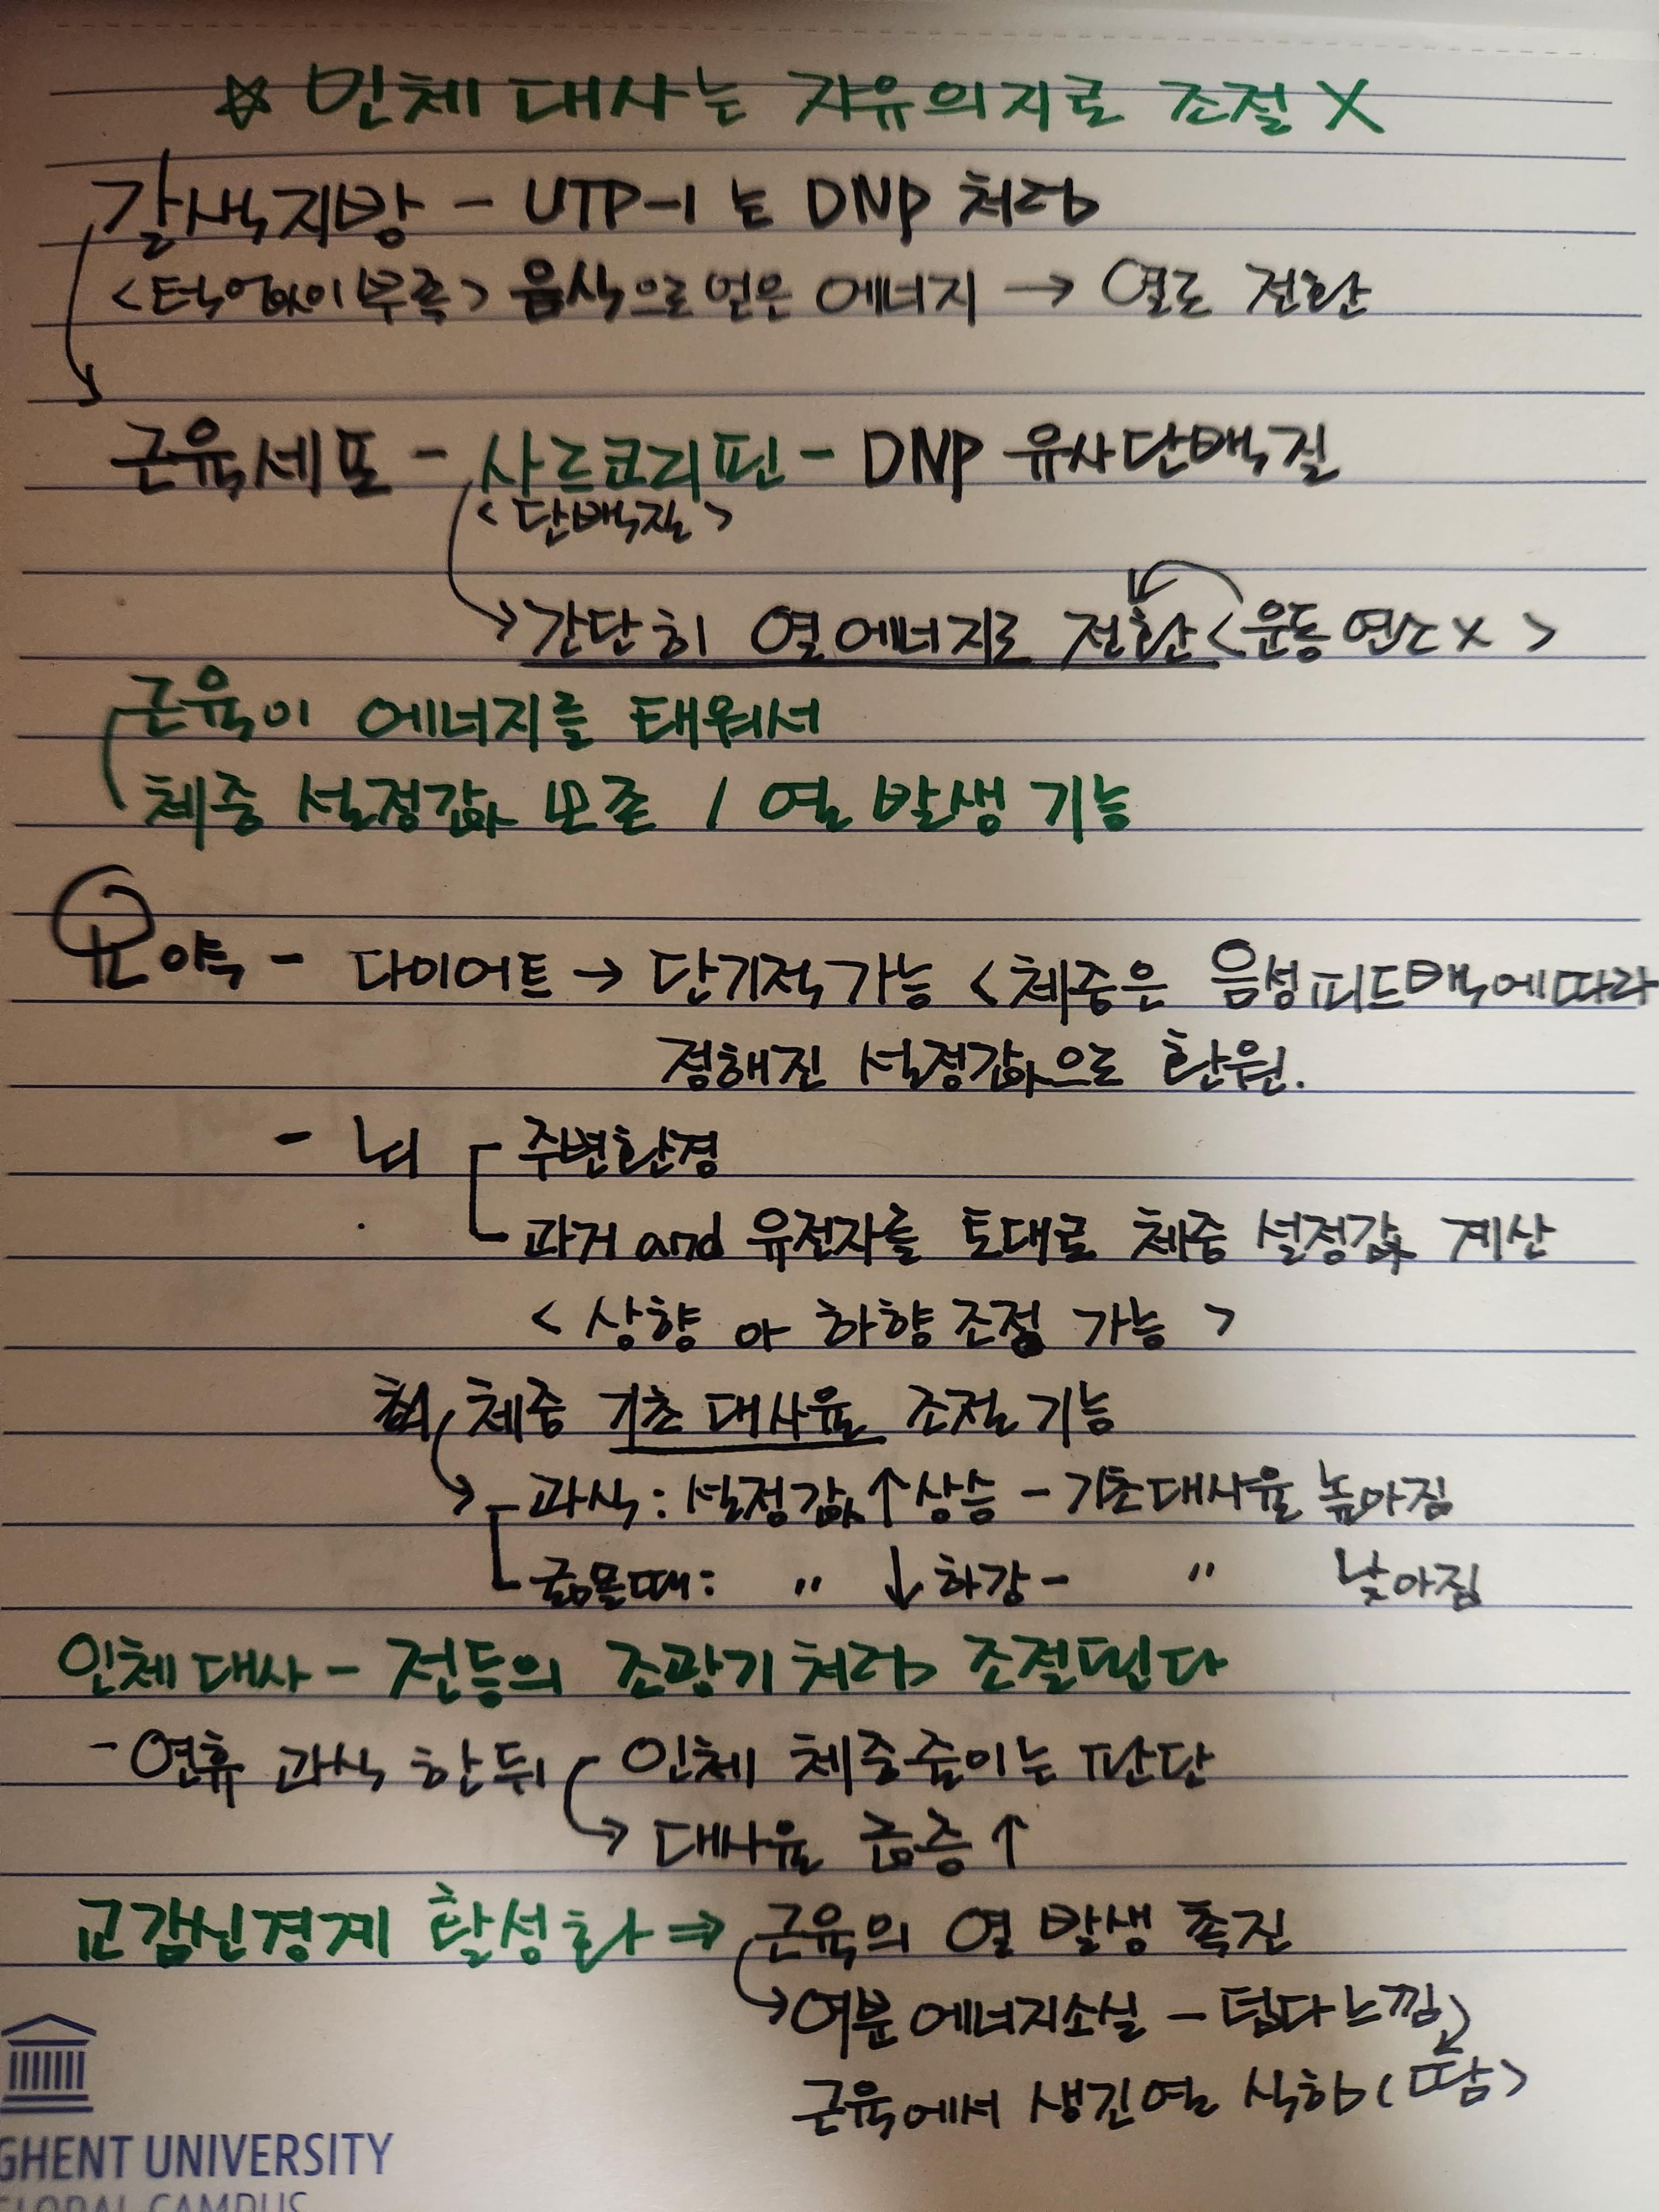 ☆ 인체 대사는 자유의지로 조절 X
갈색지방 - UTP-1 는 DNP 처럼
<턱없이 부족> 음식으로 얻은 에너지 → 열로 전환
근육세포 - 사르코리핀 - DNP 유사단백질
<단백질>
→ 간단히 열에너지로 전환 <운동 연소 X>
근육이 에너지를 태워서
체중 설정값 보존 / 열 발생 기능
요약 - 다이어트 → 단기적 가능 <체중은 음성피드백에 따라
정해진 설정값으로 환원.
- 뇌 주변환경
과거 and 유전자를 토대로 체중 설정값 계산
<상향 or 하향 조절 가능>
체중 기초 대사율 조절 기능
→ 과식 : 설정값 ↑ 상승 - 기초대사율 높아짐
굶을때 : " ↓ 하강 - " 낮아짐
인체 대사 - 전등의 조광기 처럼 조절된다
- 연휴 과식 한 뒤 인체 체중줄이는 판단
→ 대사율 급증 ↑
교감신경계 활성화 ⇒ 근육의 열 발생 촉진
→ 여분 에너지소실 - 덥다 느낌
근육에서 생긴 열 식힘 (땀>
GHENT UNIVERSITY
GLOBAL CAMPUS